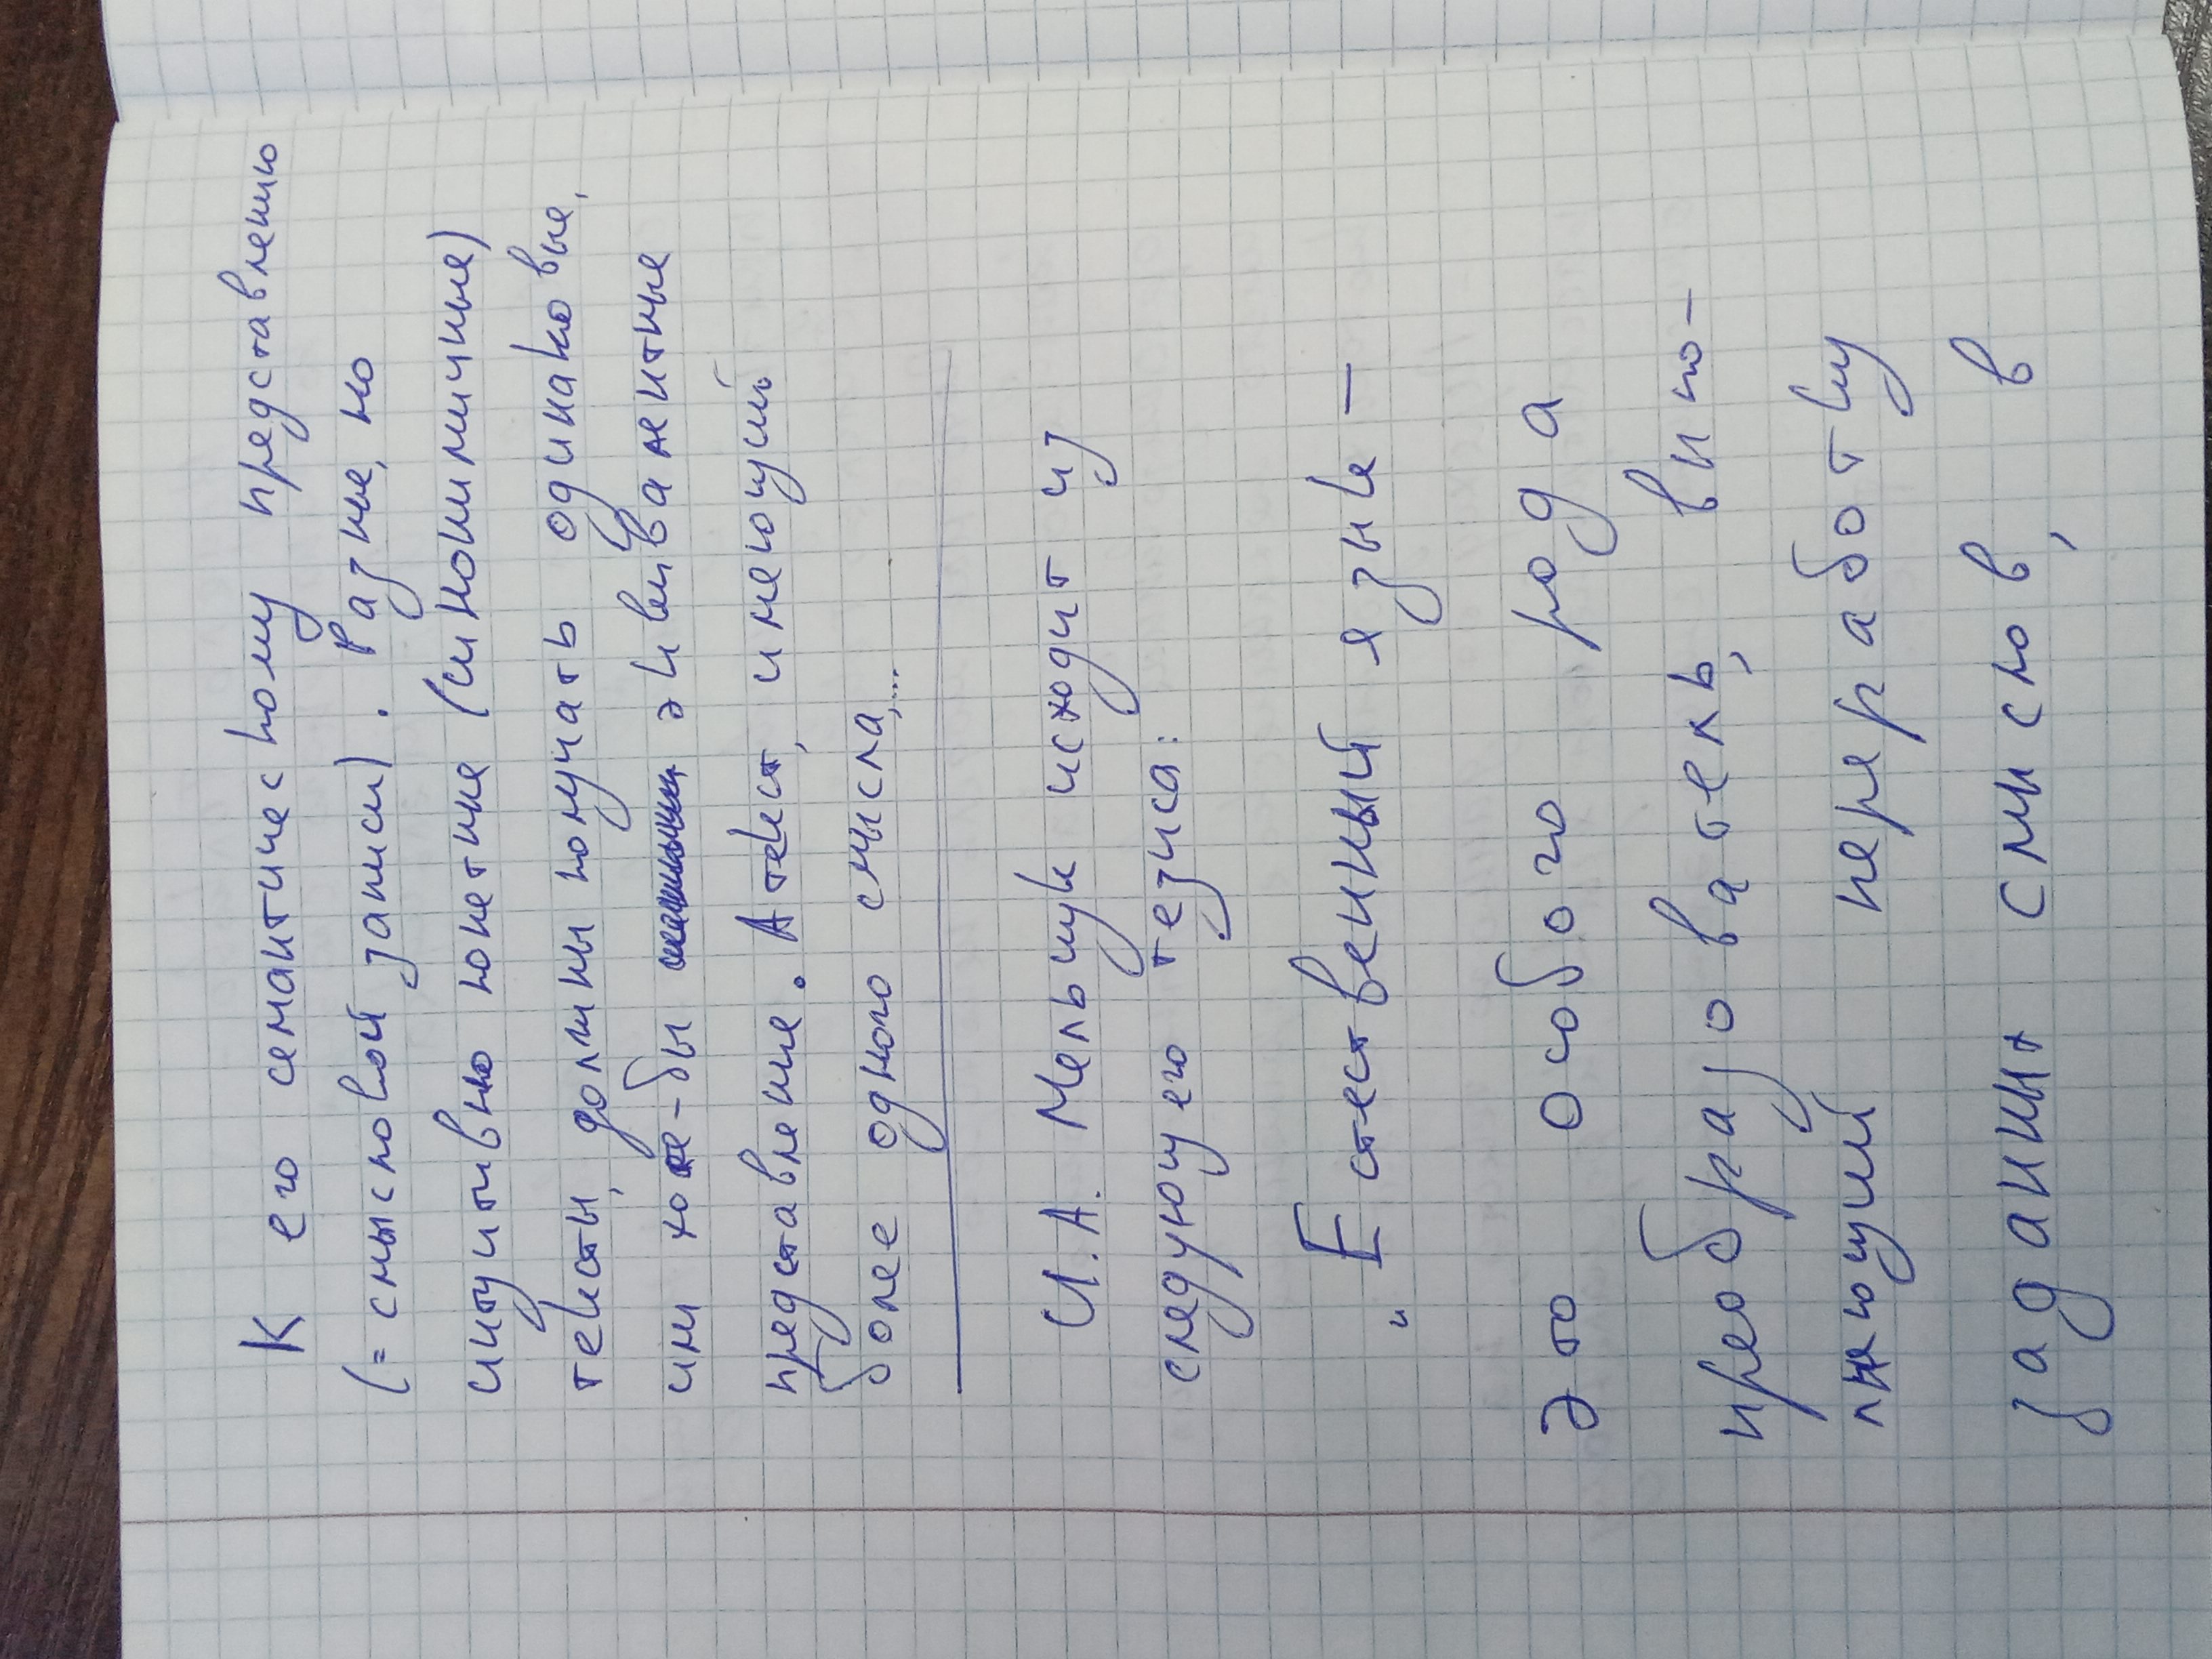 К его семантическому представлению
(= смысловой записи). Разные, но
интуитивно понятные (синонимичные)
тексты, должны получать одинаковые,
или хотя-бы эквивалентные
представление. А текст, имеющий
более одного смысла,...
И.А. Мельчук исходит из
следующего тезиса:
„Естественный язык –
это особого рода
преобразователь, выпо-
лняющий переработку
заданных смыслов, в